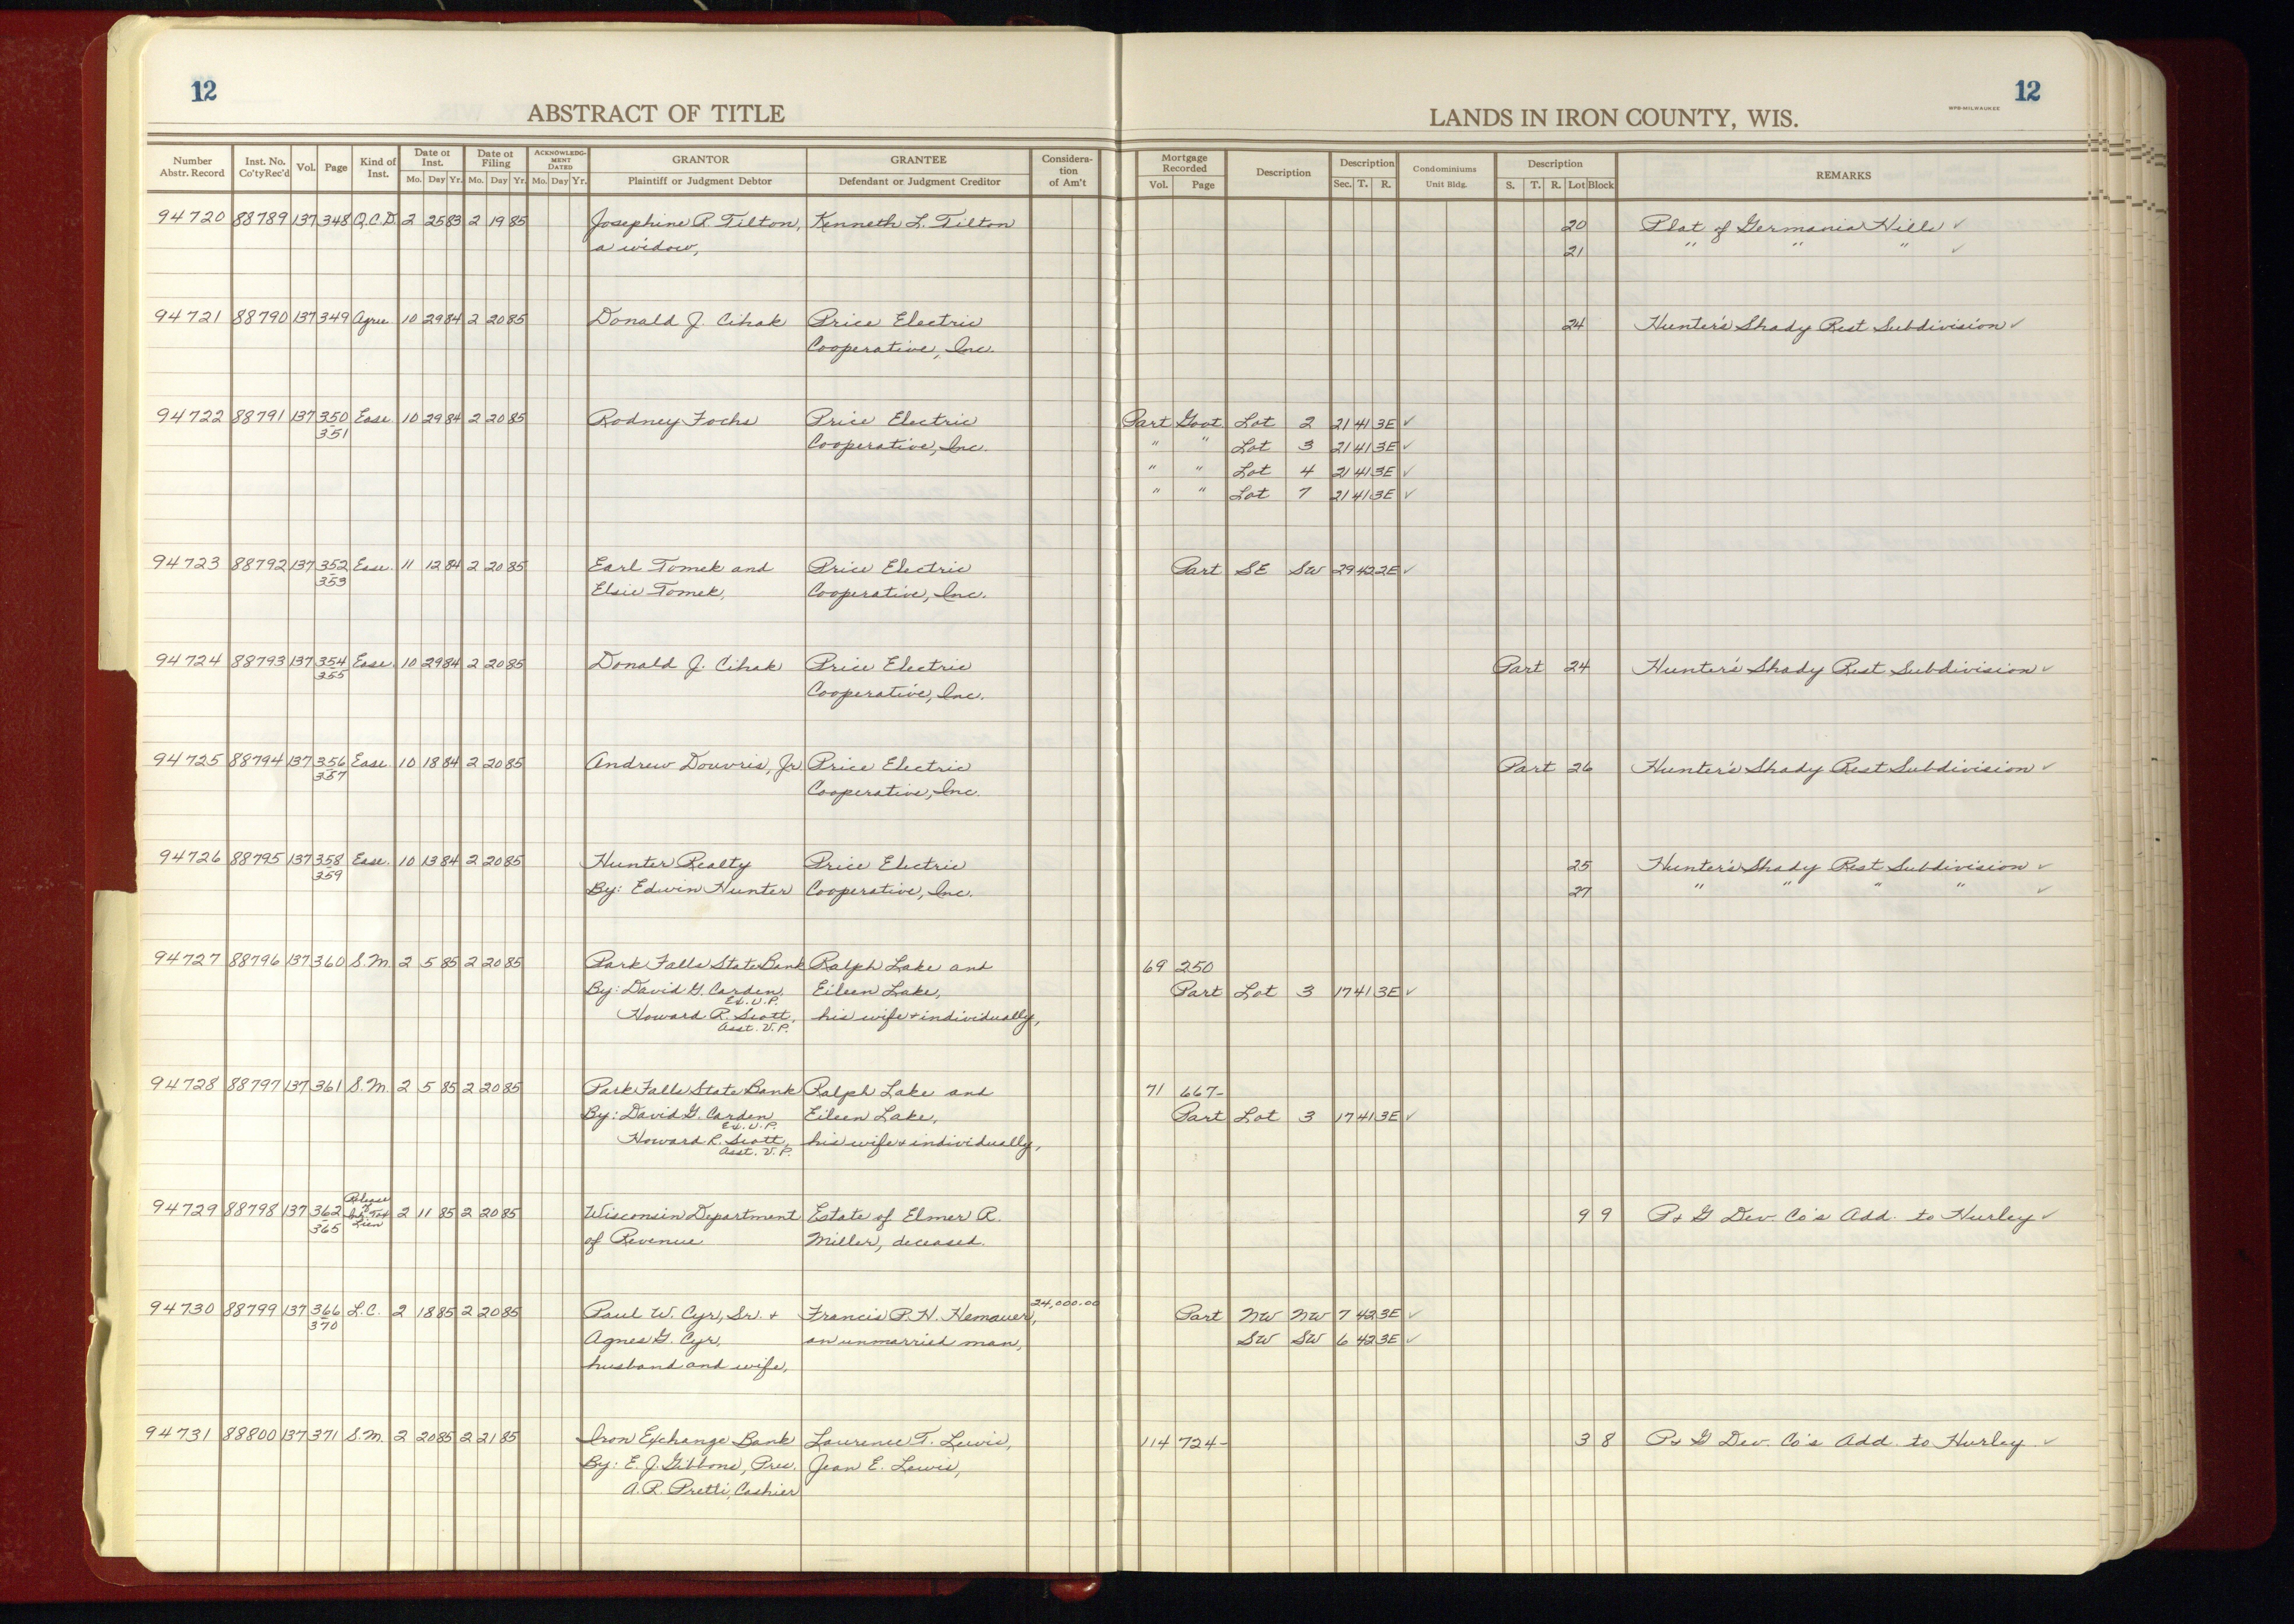 12
12
ABSTRACT OF TITLE
LANDS IN IRON COUNTY, WIS.
WPB-MILWAUKEE
Number Abstr. Record Inst. No. Co'ty Rec'd Vol. Page Kind of Inst. Date of Inst. Mo. Day Yr. Date of Filing Mo. Day Yr. ACKNOWLEDGMENT DATED Mo. Day Yr. GRANTOR Plaintiff or Judgment Debtor GRANTEE Defendant or Judgment Creditor Consideration of Am't Mortgage Recorded Vol. Page Description Description Sec. T. R. Condominiums Unit Bldg. Description S. T. R. Lot Block REMARKS
94720 88789 137 348 Q.C.D. 2 25 83 2 19 85 Josephine R. Tilton, Kenneth L. Tilton 20 Plat of Germania Hills ✓
a widow, 21 " " " ✓
94721 88790 137 349 Agree. 10 29 84 2 20 85 Donald J. Cihak Price Electric 24 Hunter's Shady Rest Subdivision ✓
Cooperative, Inc.
94722 88791 137 350 Ease. 10 29 84 2 20 85 Rodney Fochs Price Electric Part Govt Lot 2 21 41 3E ✓
351 Cooperative, Inc. " " Lot 3 21 41 3E ✓
" " Lot 4 21 41 3E ✓
" " Lot 7 21 41 3E ✓
94723 88792 137 352 Ease. 11 12 84 2 20 85 Earl Tomek and Price Electric Part SE SW 29 42 2E ✓
353 Elsie Tomek, Cooperative, Inc.
94724 88793 137 354 Ease. 10 29 84 2 20 85 Donald J. Cihak Price Electric Part 24 Hunter's Shady Rest Subdivision ✓
355 Cooperative, Inc.
94725 88794 137 356 Ease. 10 18 84 2 20 85 Andrew Douvris, Jr. Price Electric Part 26 Hunter's Shady Rest Subdivision ✓
357 Cooperative, Inc.
94726 88795 137 358 Ease. 10 13 84 2 20 85 Hunter Realty Price Electric 25 Hunter's Shady Rest Subdivision ✓
359 By: Edwin Hunter Cooperative, Inc. 27 " " " " ✓
94727 88796 137 360 S.M. 2 5 85 2 20 85 Park Falls State Bank Ralph Lake and 69 250
By: David G. Carden, Eileen Lake, Part Lot 3 17 41 3E ✓
Ex. V.P.
Howard R. Scott, his wife & individually,
Asst. V.P.
94728 88797 137 361 S.M. 2 5 85 2 20 85 Park Falls State Bank Ralph Lake and 71 667-
By: David G. Carden Eileen Lake, Part Lot 3 17 41 3E ✓
Ex. V.P.
Howard R. Scott, his wife & individually,
Asst. V.P.
94729 88798 137 362 Release of Tax Lien 2 11 85 2 20 85 Wisconsin Department Estate of Elmer R. 9 9 P & G Dev. Co's Add. to Hurley ✓
365 of Revenue Miller, deceased.
94730 88799 137 366 L.C. 2 18 85 2 20 85 Paul W. Cyr, Sr. & Francis P. H. Hemauer, 24,000.00 Part NW NW 7 42 3E ✓
370 Agnes G. Cyr, an unmarried man, SW SW 6 42 3E ✓
husband and wife,
94731 88800 137 371 S.M. 2 20 85 2 21 85 Iron Exchange Bank Laurence T. Lewis, 114 724- 3 8 P & G Dev. Co's Add. to Hurley ✓
By: E. J. Gibbons, Pres. Jean E. Lewis,
A. R. Pretti, Cashier